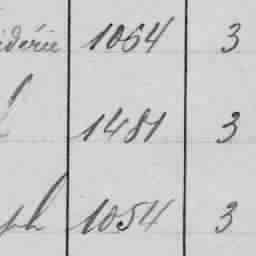 idérie 1064 3
1481 3
ph 1054 3